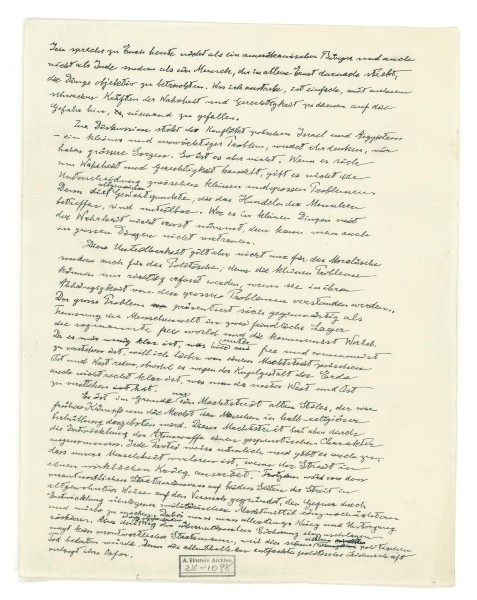 Ich spreche zu Euch heute nicht als ein amerikanischer Bürger und auch
nicht als Jude sondern als ein Mensch, der in allem Ernst danach strebt,
die Dinge objektiv zu betrachten. Was ich anstrebe, ist einfach, mit meinen
schwachen Kräften der Wahrheit und Gerechtigkeit zu dienen auf die
Gefahr hin, niemand zu gefallen.
Zur Diskussion steht der Konflikt zwischen Israel und Aegypten
- ein kleines und unwichtiges Problem, werdet ihr denken, wir
haben grössere Sorgen. So ist es aber nicht. Wenn es sich
um Wahrheit und Gerechtigkeit handelt, gibt es nicht die
Unterscheidung zwischen kleinen und grossen Problemen.
Denn die allgemeinen Gesichtspunkte, die das Handeln der Menschen
betreffen, sind unteilbar. Wer es in kleinen Dingen mit
der Wahrheit nicht ernst nimmt, dem kann man auch
in grossen Dingen nicht vertrauen.
Diese Unteilbarkeit gilt aber nicht nur für das Moralische
sondern auch für das Politische; denn die kleinen Probleme
können nur richtig erfasst werden, wenn sie in ihrer
Abhängigkeit von den grossen Problemen verstanden werden.
Das grosse Problem präsentiert sich gegenwärtig als
Trennung der Menschenwelt in zwei feindliche Lager
die sogenannte free world und die kommunist World.
Da es mir wenig klar ist, was unter free und communist
zu verstehen ist, will ich lieber von einem Machtstreit zwischen
Ost und West reden, obwohl es wegen der Kugelgestalt der Erde
auch nicht recht klar ist, was man da unter West und Ost
zu verstehen hat.
Es ist im Grunde ein Machtstreit alten Stiles, der
früher Kämpfe um die Macht den Menschen in halb-religiöser
Umhüllung dargeboten ward. Dieser Machtstreit hat aber durch
die Entwicklung der Atomwaffe einen gespenstischen Charakter
angenommen. Jede Partei weiss nämlich und gibt es auch zu,
dass unsere Menschheit verloren ist, wenn der Streit in
einen wirklichen Krieg ausartet. Trotzdem wird von den
verantwortlichen Staatsmännern auf beiden Seiten der Streit in
altgewohnter Weise auf den Versuch gegründet, den Gegner durch
Entwicklung überlegener militärischer Machtmittel einzuschüchtern
und mürbe zu machen. Dabei muss man allerdings Krieg und Untergang
riskieren. Aber den Weg der übernationalen Sicherung einzuschlagen
wagt kein verantwortlicher Staatsmann, weil dies seinen politischen
Tod bedeuten würde. Denn die allenthalben entfachte politische Leidenschaft
verlangt ihre Opfer.
A. Einstein Archive
28-1098